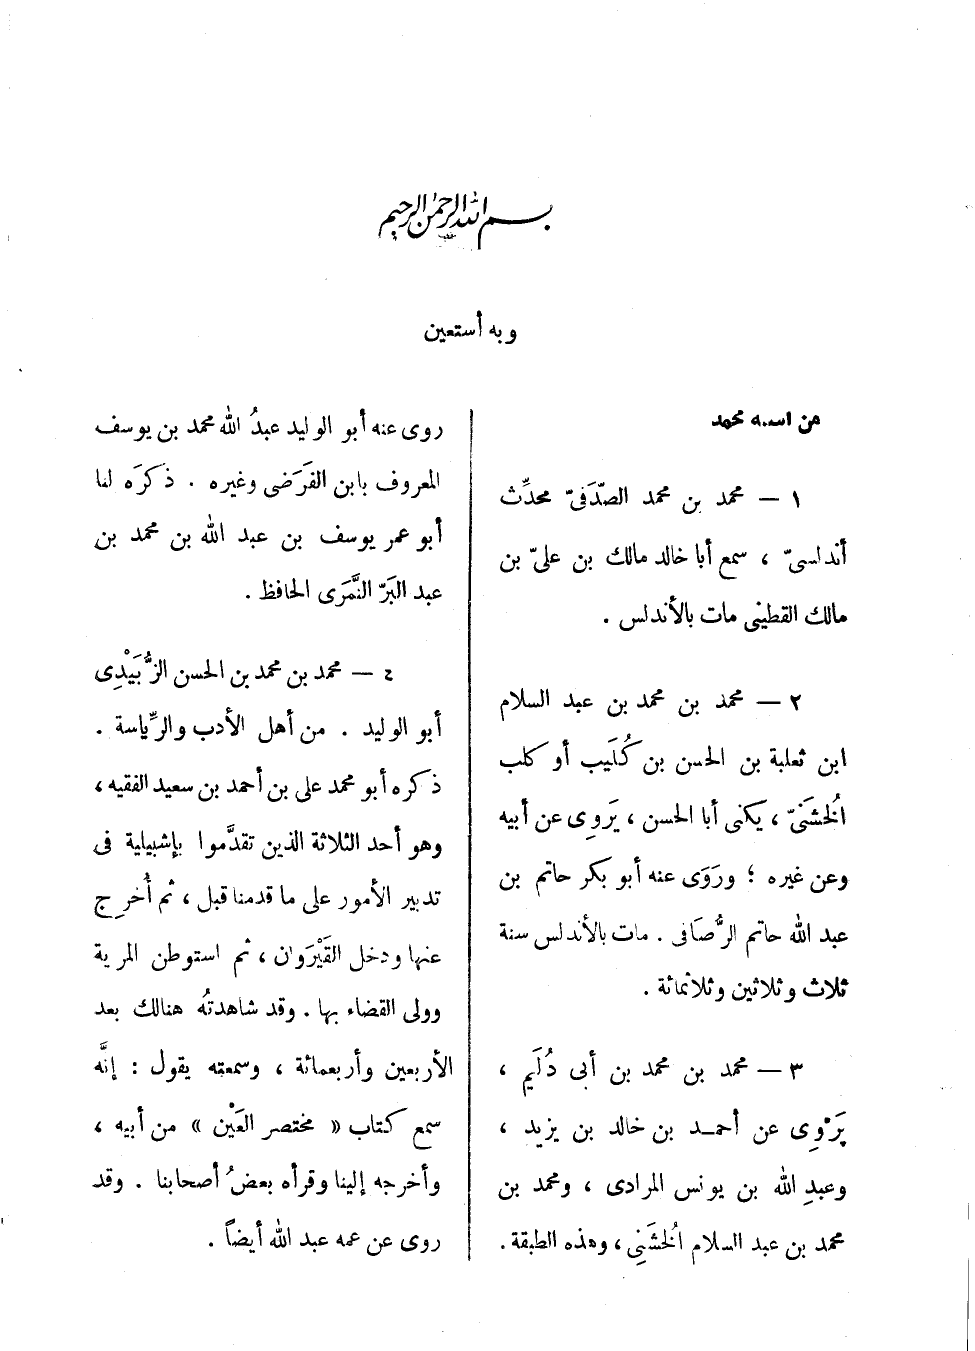 بسم الله الرحمن الرحيم
وبه أستعين
من اسمه محمد
١ — محمد بن محمد الصّدَفىّ محدِّث
أندلسىّ ، سمع أبا خالد مالك بن علىّ بن
مالك القطينى مات بالأندلس .
٢ — محمد بن محمد بن عبد السلام
ابن ثعلبة بن الحسن بن كُلَيب أو كلب
الُخشَنىّ ، يكنى أبا الحسن ، يَروِى عن أبيه
وعن غيره ؛ ورَوَى عنه أبو بكر حاتم بن
عبد الله حاتم الرُّصَافى . مات بالأندلس سنة
ثلاث وثلاثين وثلاثمائة .
٣ — محمد بن محمد بن أبى دُلَيم ،
يَرْوِى عن أحمـد بن خالد بن يزيد ،
وعبدِ الله بن يونس المرادى ، ومحمد بن
محمد بن عبد السلام الُخشَنِى ، وهذه الطبقة .
روى عنه أبو الوليد عبدُ الله محمد بن يوسف
المعروف بابن الفَرَضى وغيره . ذكَرَه لنا
أبو عمر يوسف بن عبد الله بن محمد بن
عبد البَرّ النَّمَرى الحافظ .
٤ — محمد بن محمد بن الحسن الزُّبَيْدِى
أبو الوليد . من أهل الأدب والرِّياسة .
ذكره أبو محمد على بن أحمد بن سعيد الفقيه ،
وهو أحد الثلاثة الذين تقدَّموا بإشبيلية فى
تدبير الأمور على ما قدمنا قبل ، ثم أُخرِج
عنها ودخل القَيْرَوان ، ثم استوطن المرية
وولى القضاء بها . وقد شاهدتُه هنالك بعد
الأربعين وأربعمائة ، وسمعته يقول : إنَّه
سمع كتاب « مختصر العَيْن » من أبيه ،
وأخرجه إلينا وقرأه بعضُ أصحابنا . وقد
روى عن عمه عبد الله أيضاً .